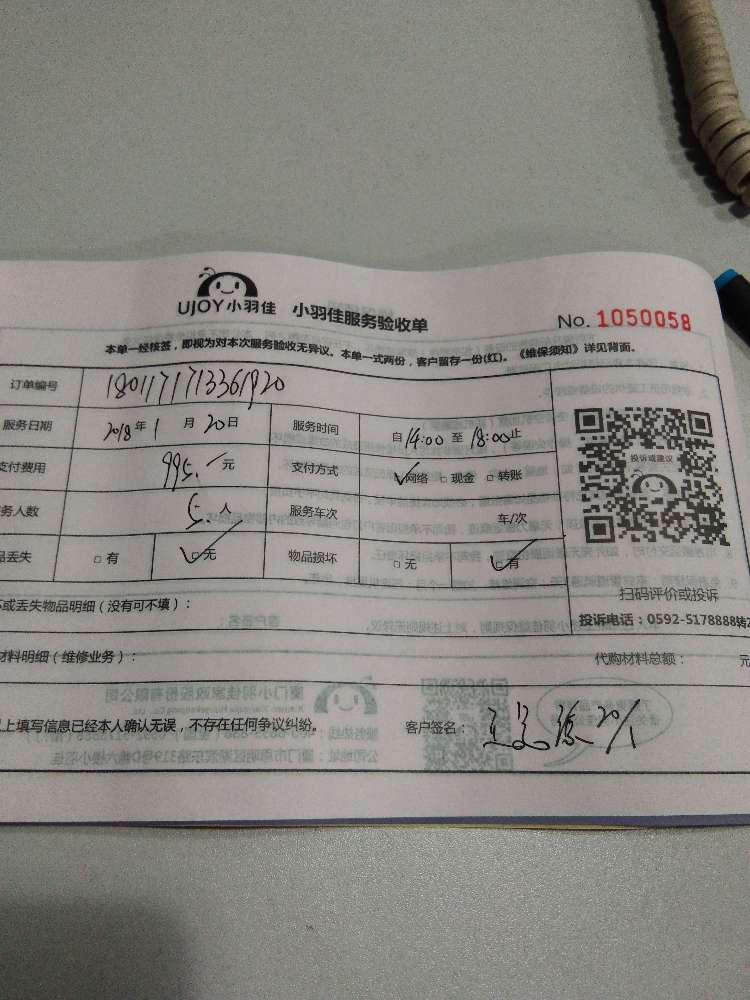 UJOY小羽佳 小羽佳服务验收单 No. 1050058
本单一经核签，即视为对本次服务验收无异议。本单一式两份，客户留存一份(红)。《维保须知》详见背面。
订单编号
服务日期 2018年1月20日 服务时间 自14:00至18:00止
支付费用 995.元 支付方式 网络 现金 转账
务人数 5.人 服务车次 车/次
品丢失 有 无 物品损坏 无 有
投诉或建议
扫码评价或投诉
坏或丢失物品明细（没有可不填）：
投诉电话：0592-5178888转2
材料明细（维修业务）： 代购材料总额： 元
上填写信息已经本人确认无误，不存在任何争议纠纷。 客户签名： 20/1